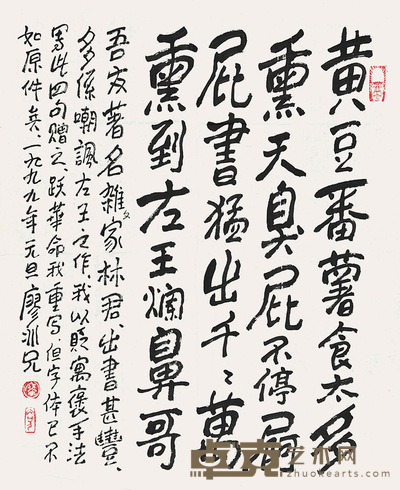 黄豆番薯食太多
熏天臭屁不停屙
屁書猛出千々萬
熏到左王爛鼻哥
吾友著名雜文家林君、出書甚豐、
多係嘲諷左王之作、我以貶寓褒手法
寫此四句贈之、跃華命我重写、但字体已不
如原件矣、一九九九年元旦廖冰兄
卓克艺术网
zhuokearts.com